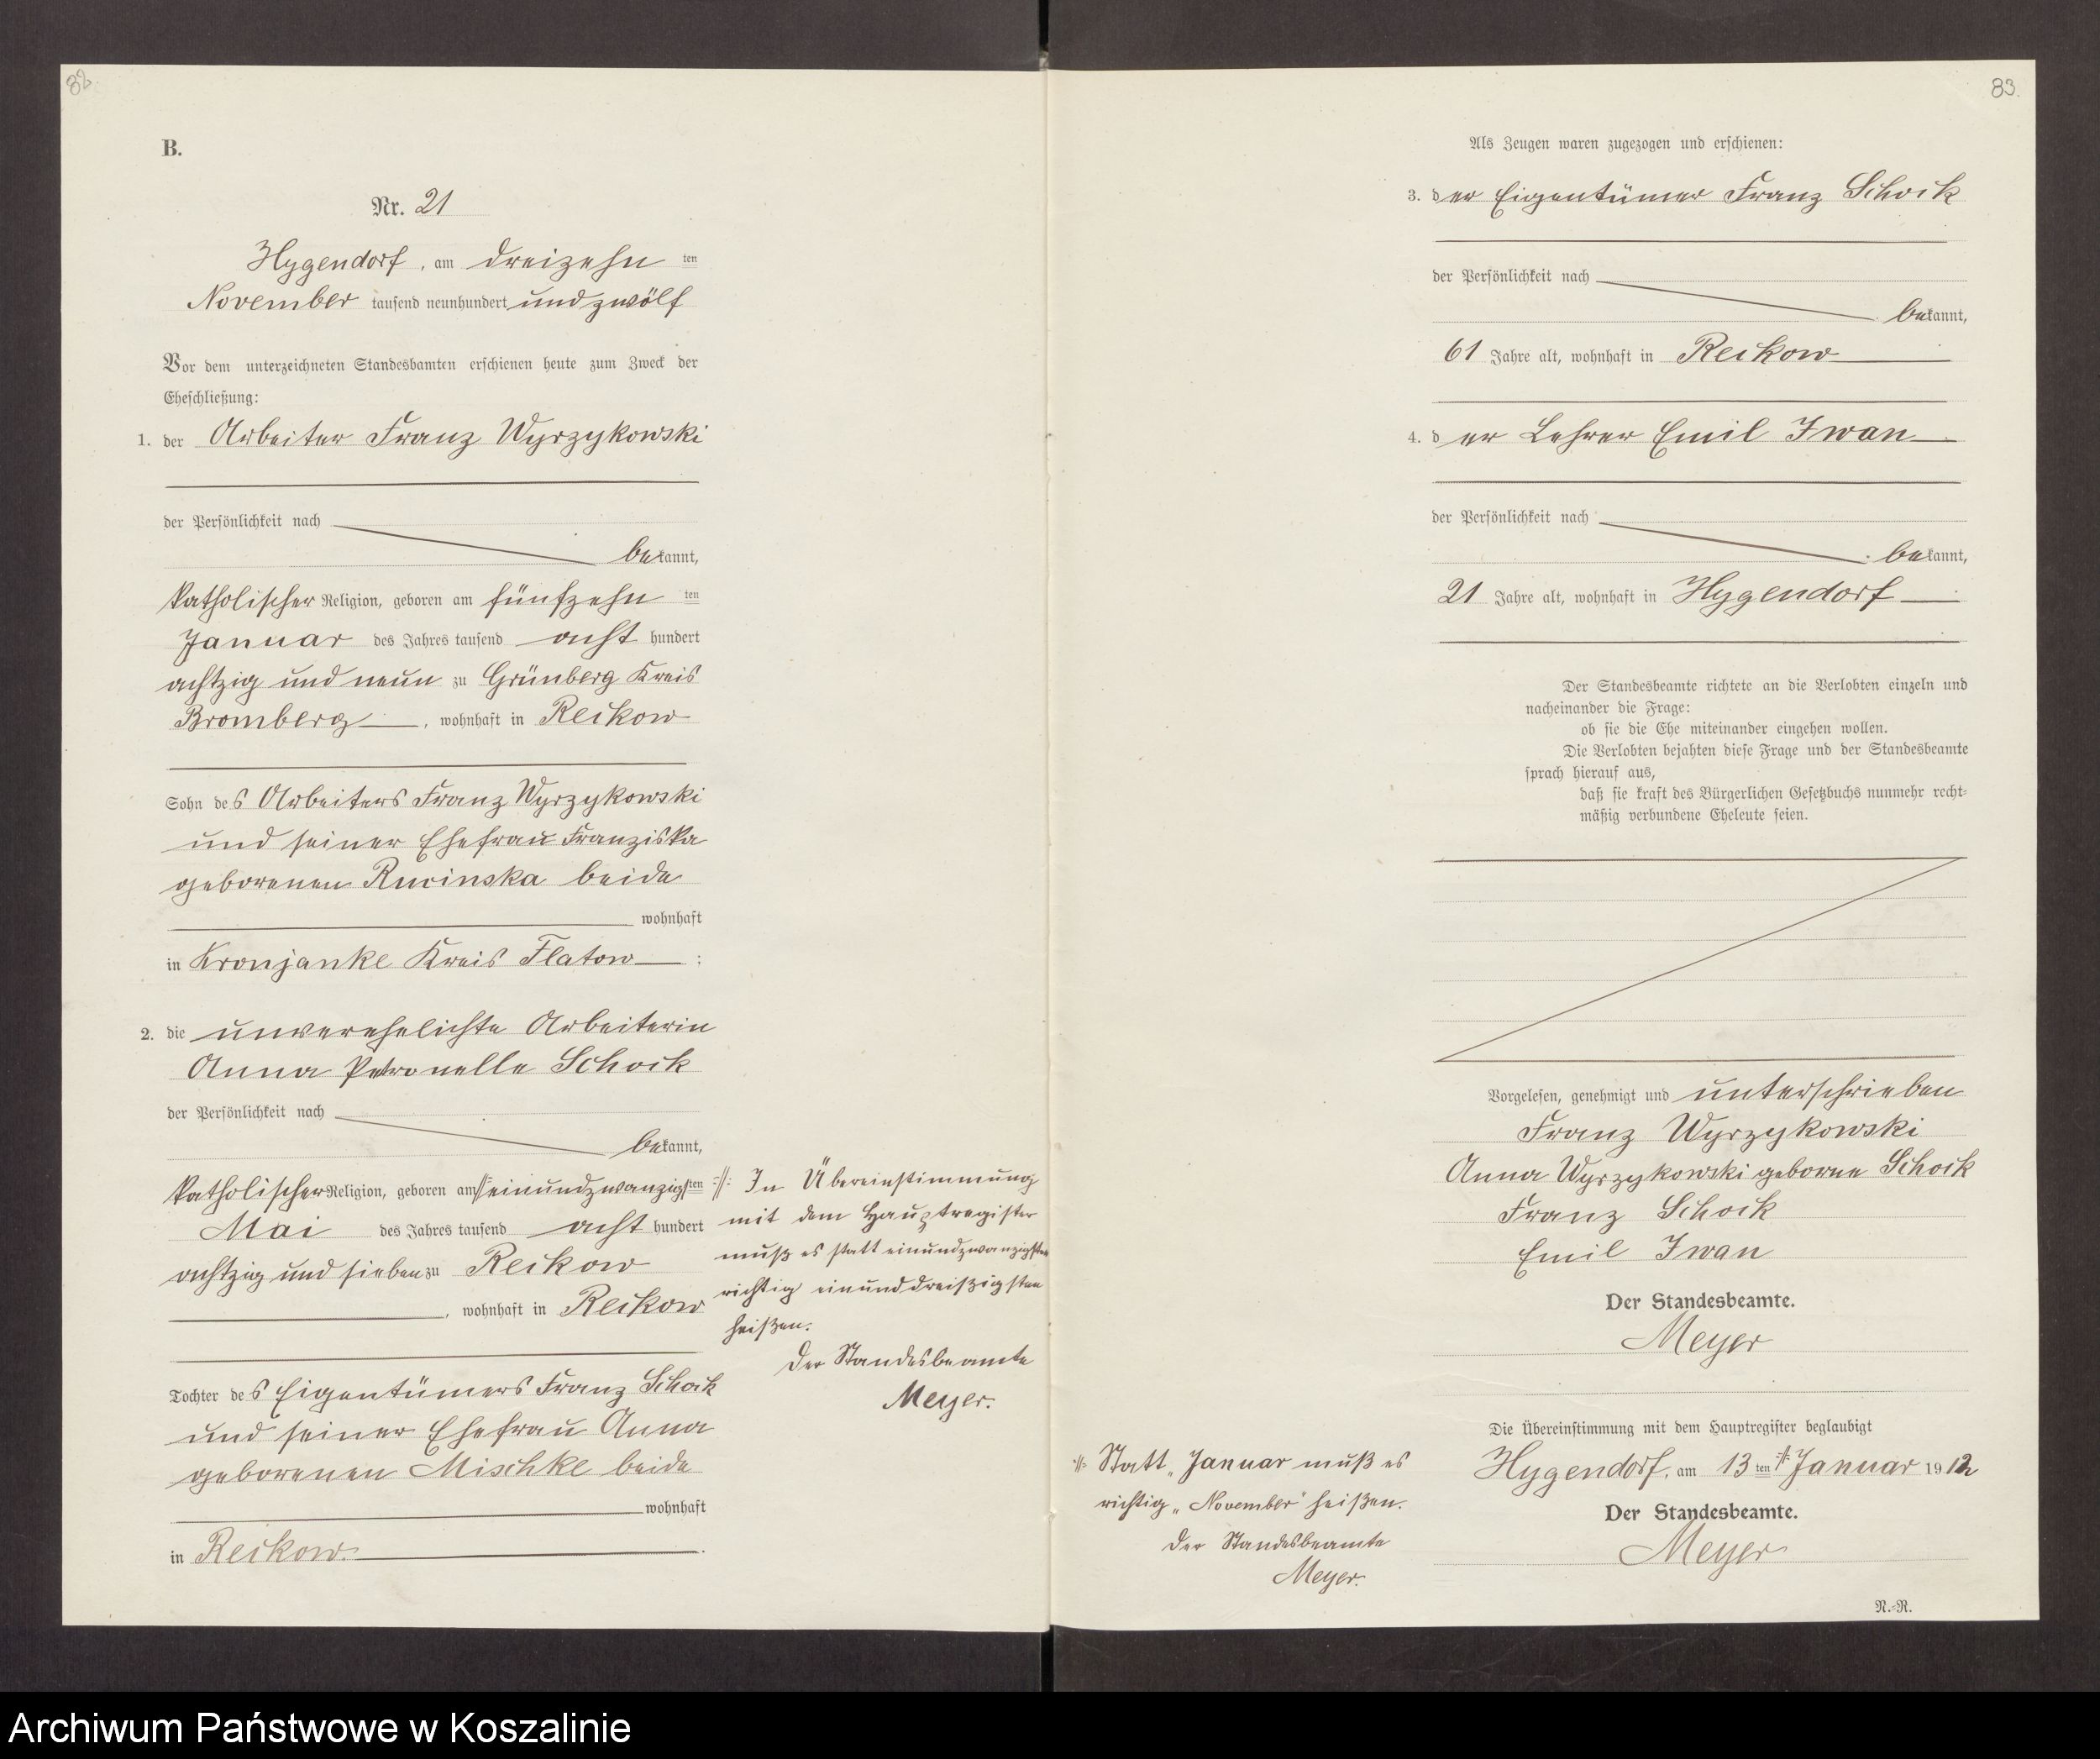 82
B.
Nr. 21
Hygendorf, am dreizehnten
November tausend neunhundert und zwölf
Vor dem unterzeichneten Standesbamten erschienen heute zum Zweck der
Eheschließung:
1. der Arbeiter Franz Wyrzykowski
der Persönlichkeit nach
bekannt,
katholischer Religion, geboren am fünfzehnten
Januar des Jahres tausend acht hundert
achtzig und neun zu Grünberg Kreis
Bromberg, wohnhaft in Reckow
Sohn des Arbeiters Franz Wyrzykowski
und seiner Ehefrau Franziska
geborenen Rucinska beide
wohnhaft
in Kronjanke Kreis Flatow :
2. die unverehelichte Arbeiterin
Anna Petronella Schock
der Persönlichkeit nach
bekannt,
katholischer Religion, geboren am // einundzwanzigsten
Mai des Jahres tausend acht hundert
achtzig und sieben zu Reckow
, wohnhaft in Reckow
Tochter des Eigentümers Franz Schock
und seiner Ehefrau Anna
geborenen Mischke beide
wohnhaft
in Reckow.
://: In Übereinstimmung
mit dem Hauptregister
muß es statt einundzwanzigsten
richtig einunddreißigsten
heißen.
Der Standesbeamte
Meyer.
83.
Als Zeugen waren zugezogen und erschienen:
3. der Eigentümer Franz Schock
der Persönlichkeit nach
bekannt,
61 Jahre alt, wohnhaft in Reckow
4. der Lehrer Emil Iwan
der Persönlichkeit nach
bekannt,
21 Jahre alt, wohnhaft in Hygendorf
Der Standesbeamte richtete an die Verlobten einzeln und
nacheinander die Frage:
ob sie die Ehe miteinander eingehen wollen.
Die Verlobten bejahten diese Frage und der Standesbeamte
sprach hierauf aus,
daß sie kraft des Bürgerlichen Gesetzbuchs nunmehr recht-
mäßig verbundene Eheleute seien.
Vorgelesen, genehmigt und unterschrieben
Franz Wyrzykowski
Anna Wyrzykowski geborne Schock
Franz Schock
Emil Iwan
Der Standesbeamte.
Meyer
Die Übereinstimmung mit dem Hauptregister beglaubigt
Hygendorf, am 13ten //: Januar 1912
Der Standesbeamte.
Meyer
://: Statt „Januar muß es
richtig „November" heißen.
Der Standesbeamte
Meyer.
N.-R.
Archiwum Państwowe w Koszalinie